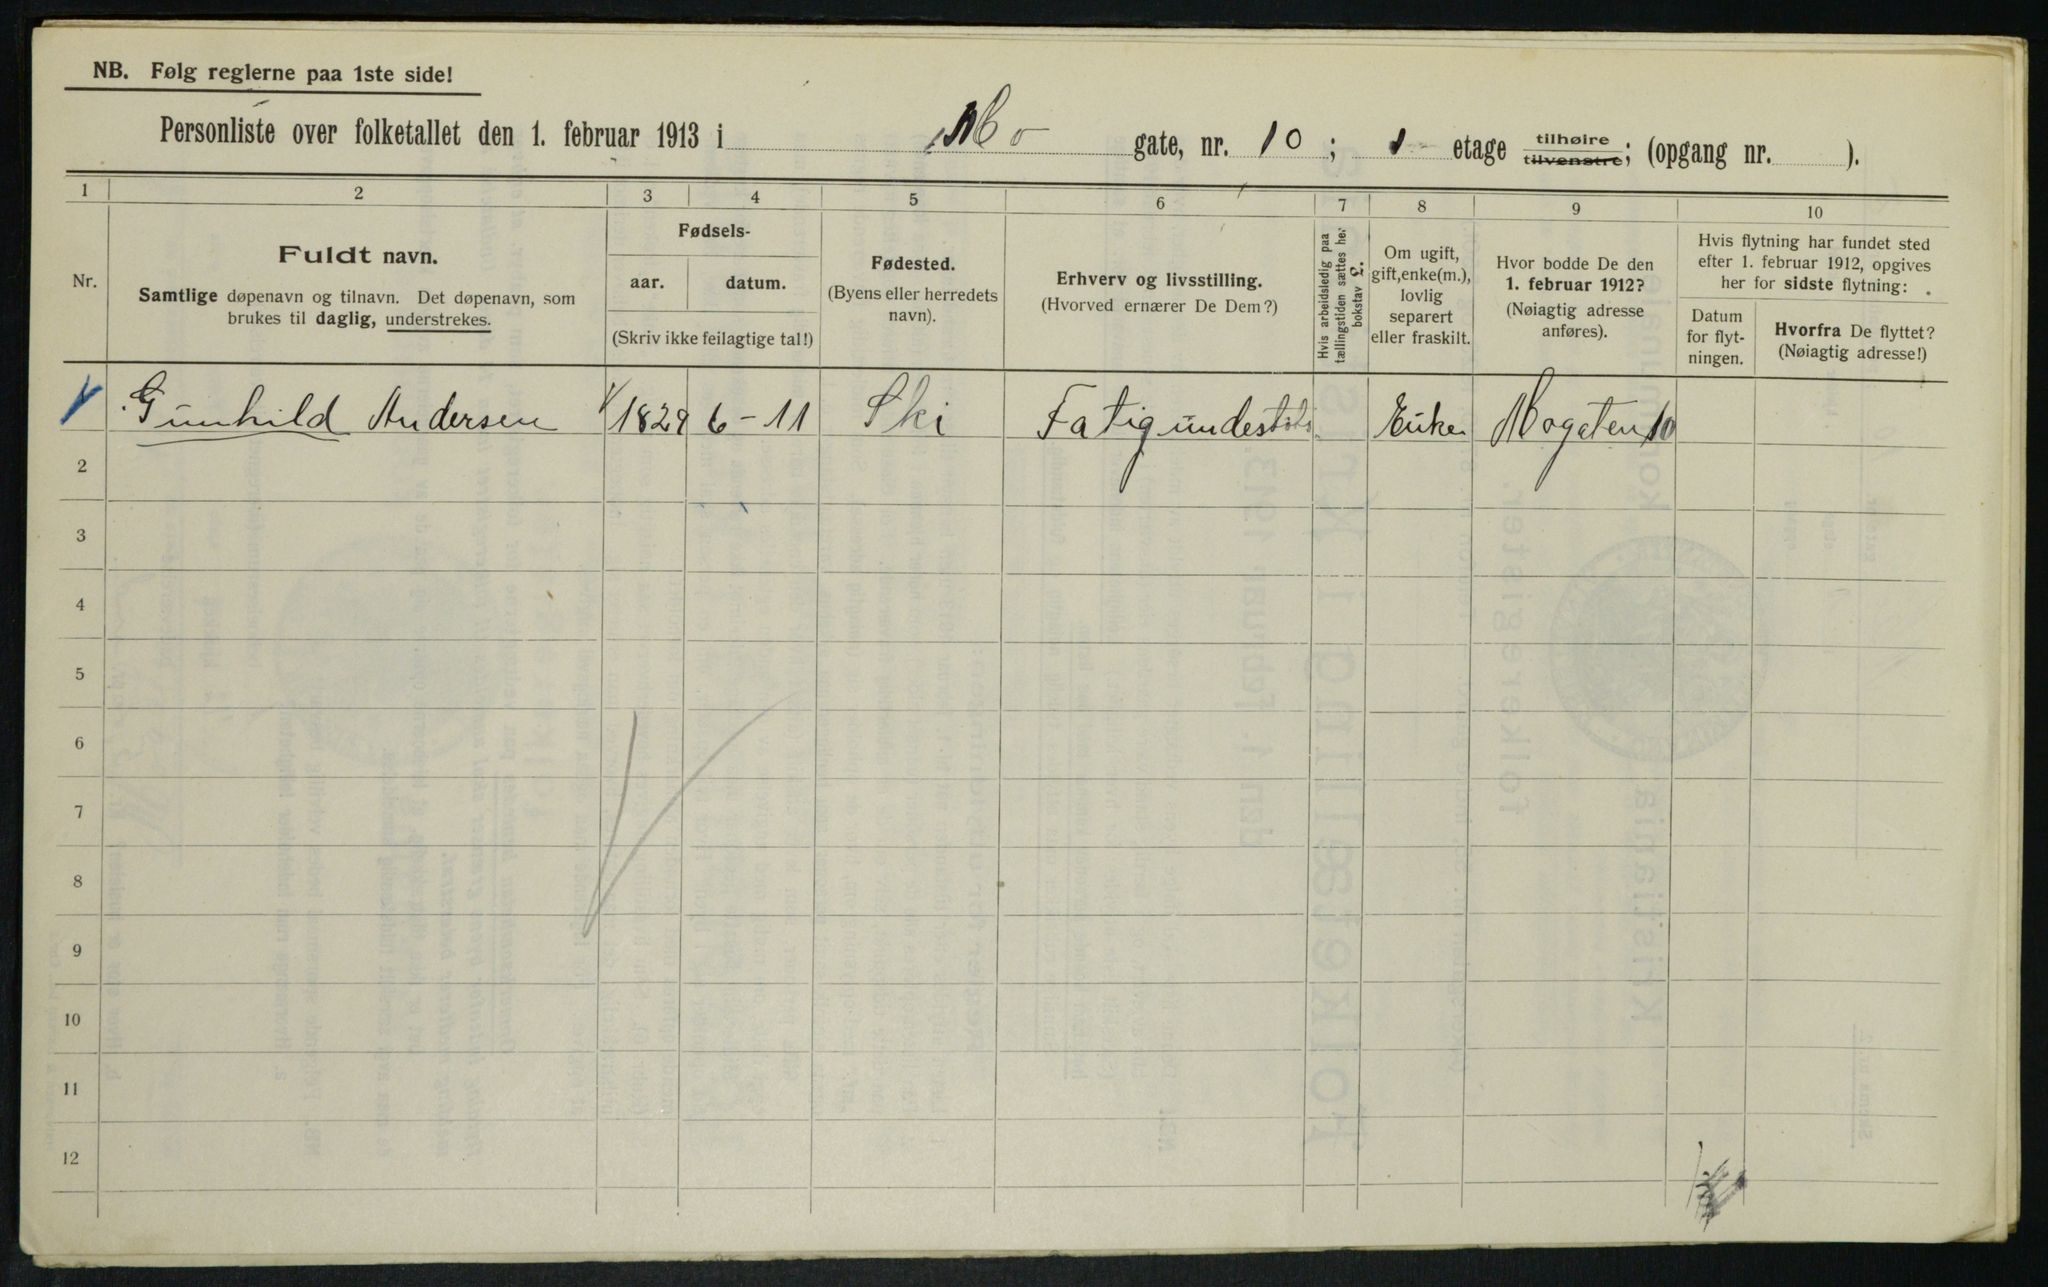 NB. Følg reglerne paa 1ste side!
Personliste over folketallet den 1. februar 1913 i Mo gate, nr. 10; 1 etage tilhøire tilvenstre; (opgang nr. ).
1 2 3 4 5 6 7 8 9 10
Nr.
Fuldt navn.
Samtlige døpenavn og tilnavn. Det døpenavn, som
brukes til daglig, understrekes.
Fødsels-
aar. datum.
(Skriv ikke feilagtige tal!)
Fødested.
(Byens eller herredets
navn).
Erhverv og livsstilling.
(Hvorved ernærer De Dem?)
Hvis arbeidsledig paa
tællingstiden sættes her
bokstav L.
Om ugift,
gift, enke(m.),
lovlig
separert
eller fraskilt.
Hvor bodde De den
1. februar 1912?
(Nøiagtig adresse
anføres).
Hvis flytning har fundet sted
efter 1. februar 1912, opgives
her for sidste flytning:
Datum
for flyt-
ningen.
Hvorfra De flyttet?
(Nøiagtig adresse!)
Gunhild Andersen 1829 6-11 Ski Fatigundestøt. Enke Mogaten 10
2
3
4
5
6
7
8
9
10
11
12